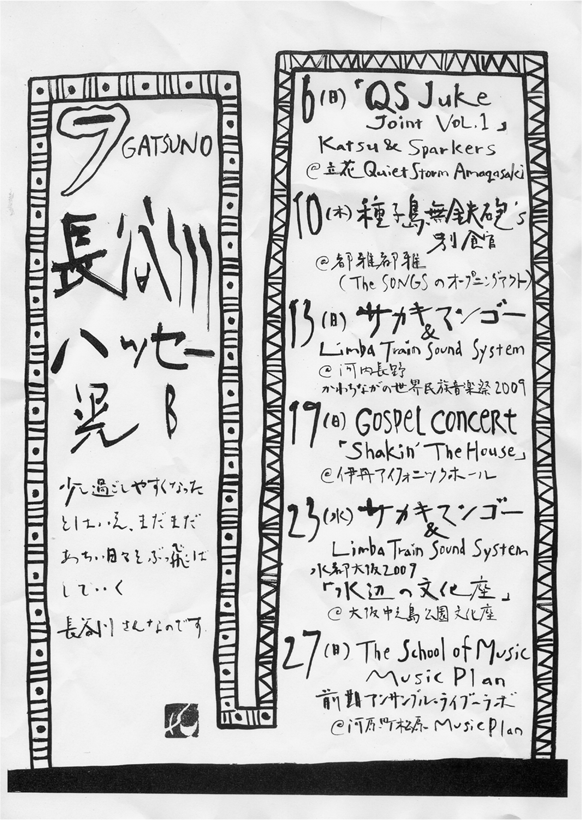 9 GATSUNO
長谷川
ハッセー
晃 B
少し過ごしやすくなった
とはいえ、まだまだ
あっちい日々をぶっ飛ば
していく
長谷川さんなのです。
6(日)「QS Juke
Joint VOL.1」
Katsu & Sparkers
@立花 Quiet Storm Amagasaki
10(木) 種子島無鉄砲's
別館
@都雅都雅
(The SONGSのオープニングアクト)
13(日) サカキマンゴー
&
Limba Train Sound System
@河内長野
かわちながの世界民族音楽祭2009
19(日) GOSPEL CONCERT
「Shakin' The House」
@伊丹アイフォニックホール
23(水) サカキマンゴー
&
Limba Train Sound System
水都大阪2009
「水辺の文化座」
@大阪中之島公園文化座
27(日) The School of Music
Music Plan
前期アンサンブル・ライブ・ラボ
@河原町松原 Music Plan